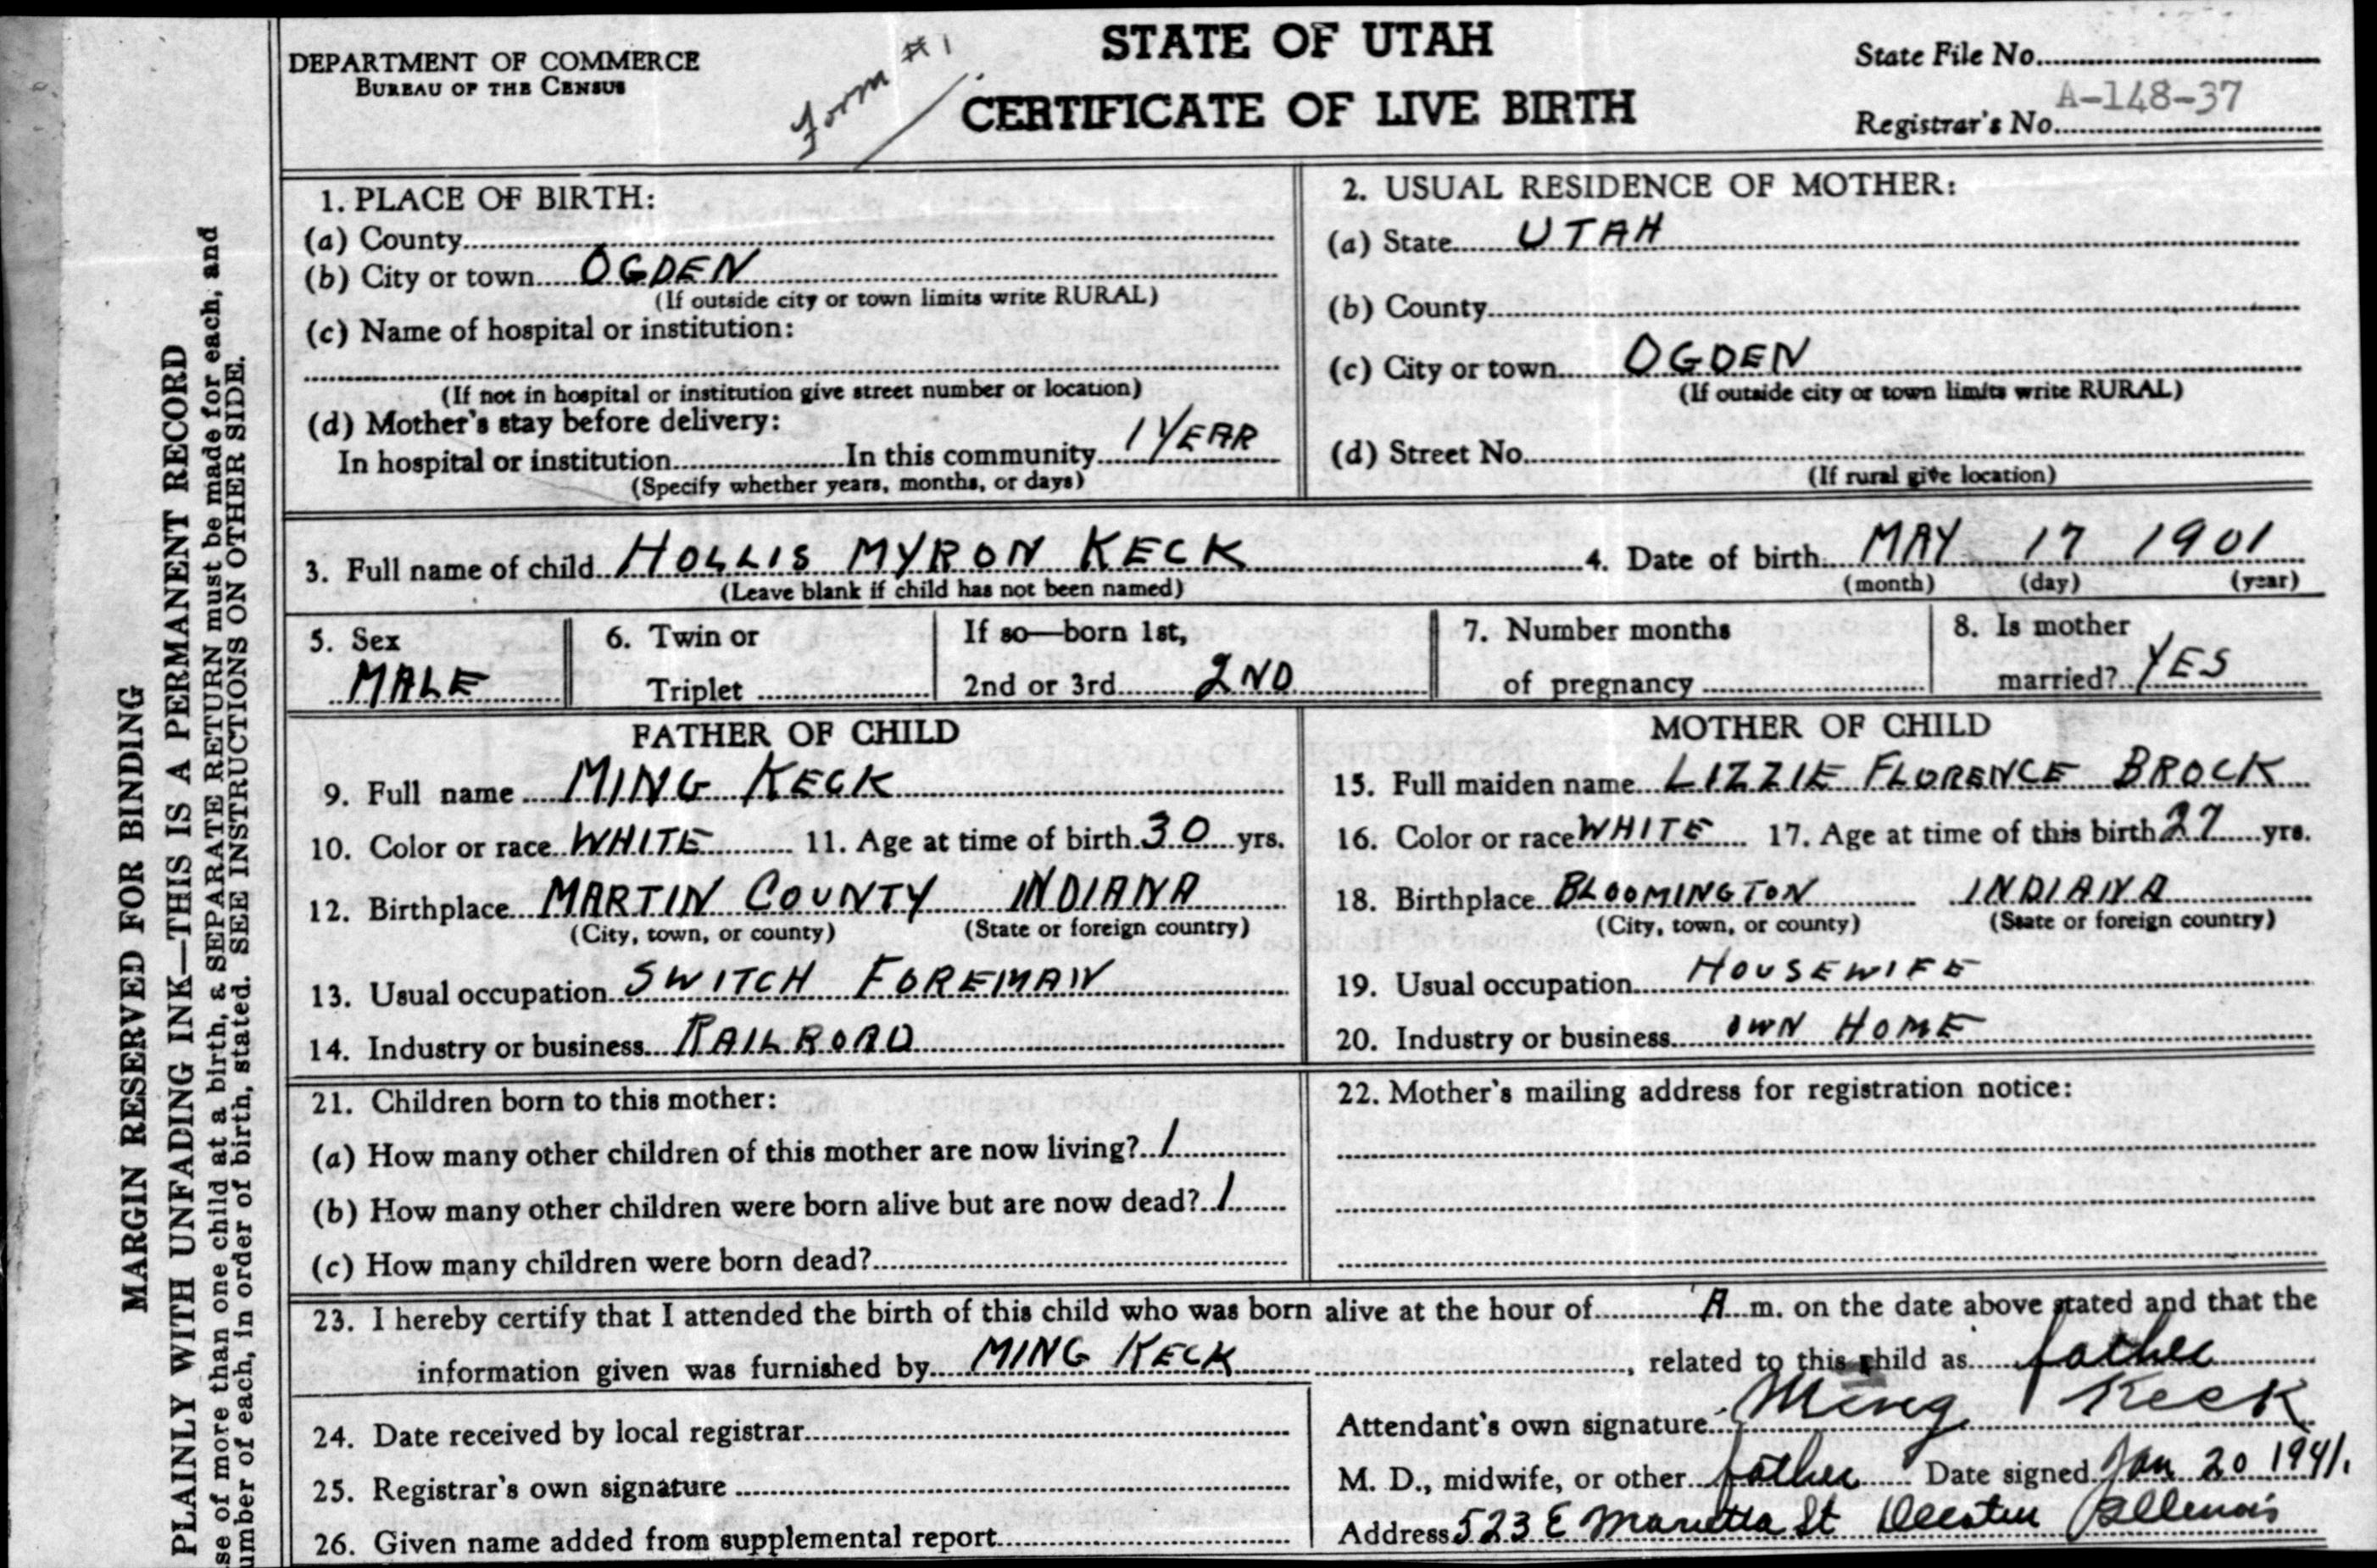 DEPARTMENT OF COMMERCE
BUREAU OF THE CENSUS
Form #1
STATE OF UTAH
CERTIFICATE OF LIVE BIRTH
State File No.
Registrar's No. A-148-37
MARGIN RESERVED FOR BINDING
PLAINLY WITH UNFADING INK—THIS IS A PERMANENT RECORD
se of more than one child at a birth, a SEPARATE RETURN must be made for each, and
umber of each, in order of birth, stated. SEE INSTRUCTIONS ON OTHER SIDE.
1. PLACE OF BIRTH:
(a) County
(b) City or town OGDEN
(If outside city or town limits write RURAL)
(c) Name of hospital or institution:
(If not in hospital or institution give street number or location)
(d) Mother's stay before delivery:
In hospital or institution In this community 1 YEAR
(Specify whether years, months, or days)
2. USUAL RESIDENCE OF MOTHER:
(a) State UTAH
(b) County
(c) City or town OGDEN
(If outside city or town limits write RURAL)
(d) Street No.
(If rural give location)
3. Full name of child HOLLIS MYRON KECK 4. Date of birth MAY 17 1901
(Leave blank if child has not been named) (month) (day) (year)
5. Sex MALE
6. Twin or Triplet
If so—born 1st, 2nd or 3rd 2ND
7. Number months of pregnancy
8. Is mother married? YES
FATHER OF CHILD
9. Full name MING KECK
10. Color or race WHITE 11. Age at time of birth 30 yrs.
12. Birthplace MARTIN COUNTY INDIANA
(City, town, or county) (State or foreign country)
13. Usual occupation SWITCH FOREMAN
14. Industry or business RAILROAD
MOTHER OF CHILD
15. Full maiden name LIZZIE FLORENCE BROCK
16. Color or race WHITE 17. Age at time of this birth 27 yrs.
18. Birthplace BLOOMINGTON INDIANA
(City, town, or county) (State or foreign country)
19. Usual occupation HOUSEWIFE
20. Industry or business OWN HOME
21. Children born to this mother:
(a) How many other children of this mother are now living? 1
(b) How many other children were born alive but are now dead? 1
(c) How many children were born dead?
22. Mother's mailing address for registration notice:
23. I hereby certify that I attended the birth of this child who was born alive at the hour of A m. on the date above stated and that the
information given was furnished by MING KECK, related to this child as father
24. Date received by local registrar
25. Registrar's own signature
26. Given name added from supplemental report
Attendant's own signature Ming Keck
M. D., midwife, or other father Date signed Jan 20 1941.
Address 523 E Marietta St Decatur Illinois